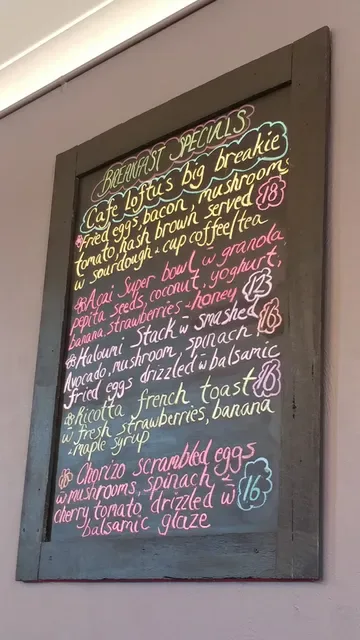 BREAKFAST SPECIALS
Cafe Loftus big breakie
Fried eggs, bacon, mushrooms
tomato, hash brown served 18
w sourdough + cup coffee/tea
Acai Super bowl w granola,
pepita seeds, coconut, yoghurt,
banana, strawberries + honey 12
Haloumi Stack w smashed 16
Avocado, mushroom, spinach
fried eggs drizzled w balsamic
Ricotta french toast 16
w fresh strawberries, banana
+ maple syrup
Chorizo scrambled eggs
w mushrooms, spinach + 16
cherry tomato, drizzled w
balsamic glaze